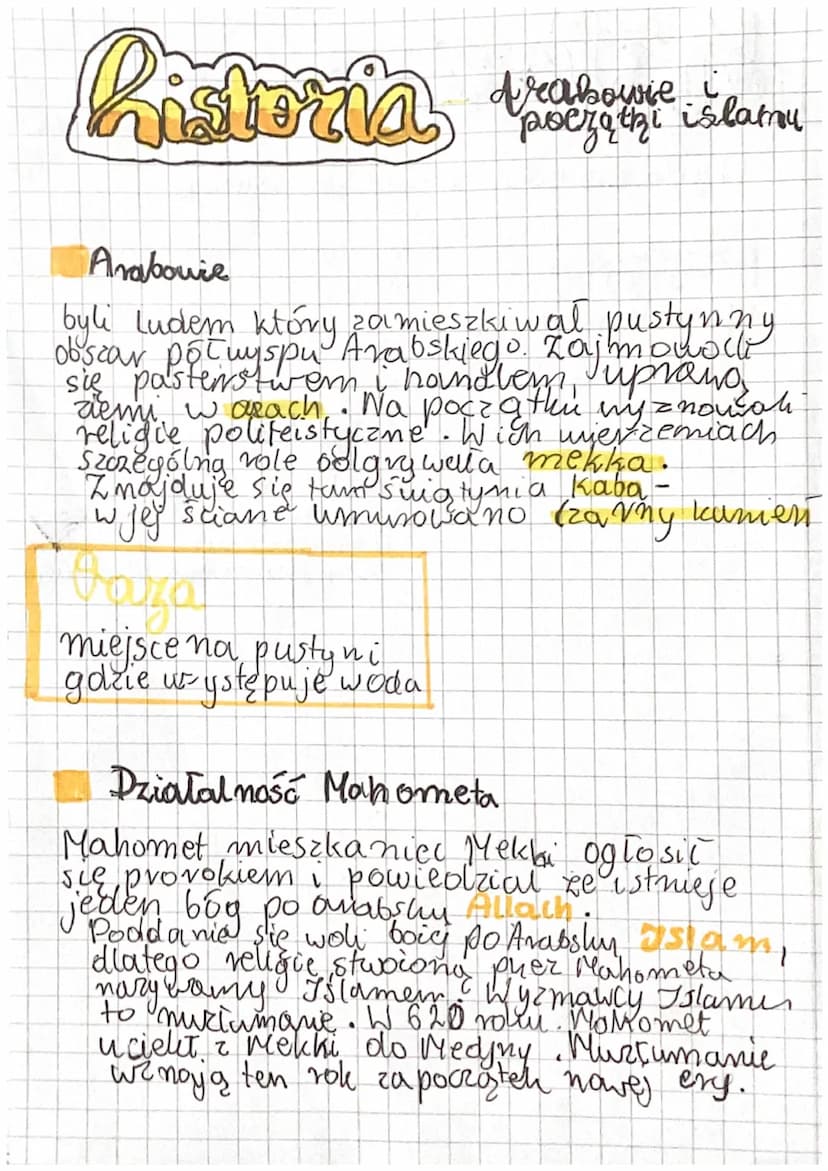 historia - Arabowie i
początki islamu
Arabowie
byli ludem który zamieszkiwał pustynny
obszar półwyspu Arabskiego. Zajmowali
się pasterstwem i handlem, uprawą
ziemi w oazach. Na początku wyznawali
religie politeistyczne. W ich wierzeniach
szczególną role odgrywała mekka.
Znajduje się tam świątynia kaba -
w jej ściane wmurowano czarny kamień
Oaza
miejsce na pustyni
gdzie występuje woda
Działalność Mahometa
Mahomet mieszkaniec Mekki ogłosił
się prorokiem i powiedział że istnieje
jeden bóg po arabsku Allach.
Poddanie się woli bożej po Arabsku Islam,
dlatego religie stworzoną przez Mahometa
nazywamy Islamem. Wyznawcy Islamu
to muzłumanie. W 620 roku. Mahomet
uciekł z Mekki do Medyny. Muzłumanie
uznają ten rok za początek nowej ery.